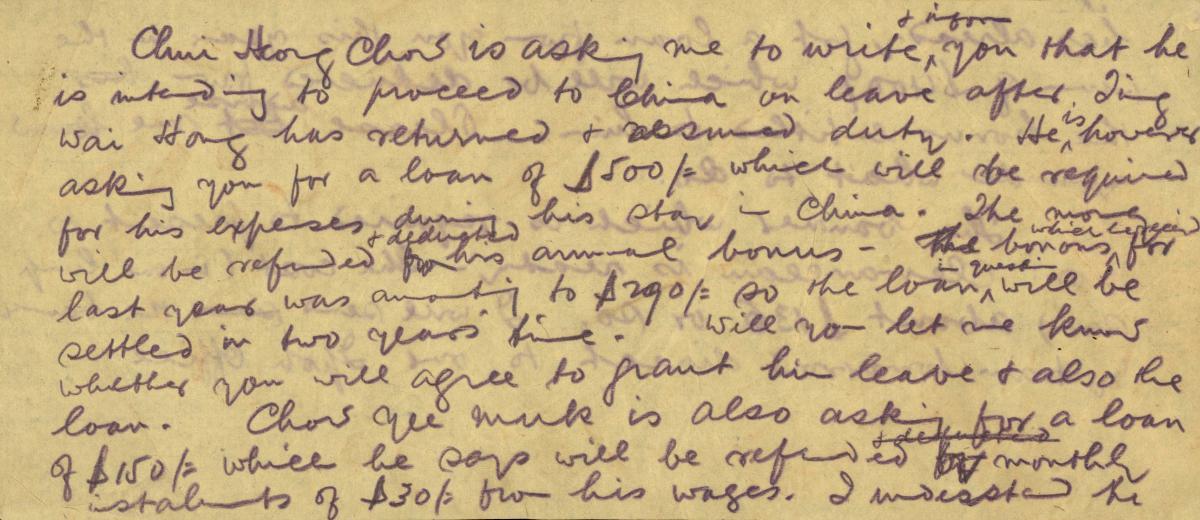 Chui Hong Chow is asking me to write & inform you that he
is intending to proceed to China on leave after Ting
Wai Hong has returned & resumed duty. He is however
asking you for a loan of $500/= which will be required
for his expenses during his stay in China. The money
will be refunded & deducted from his annual bonus - the bonus which
last year was amounting to $290/= so the loan in question will be
settled in two years' time. Will you let me know
whether you will agree to grant him leave & also the
loan. Chow Yee Muk is also asking for a loan
of $150/= which he says will be refunded & deducted by monthly
instalments of $30/= from his wages. I understand he